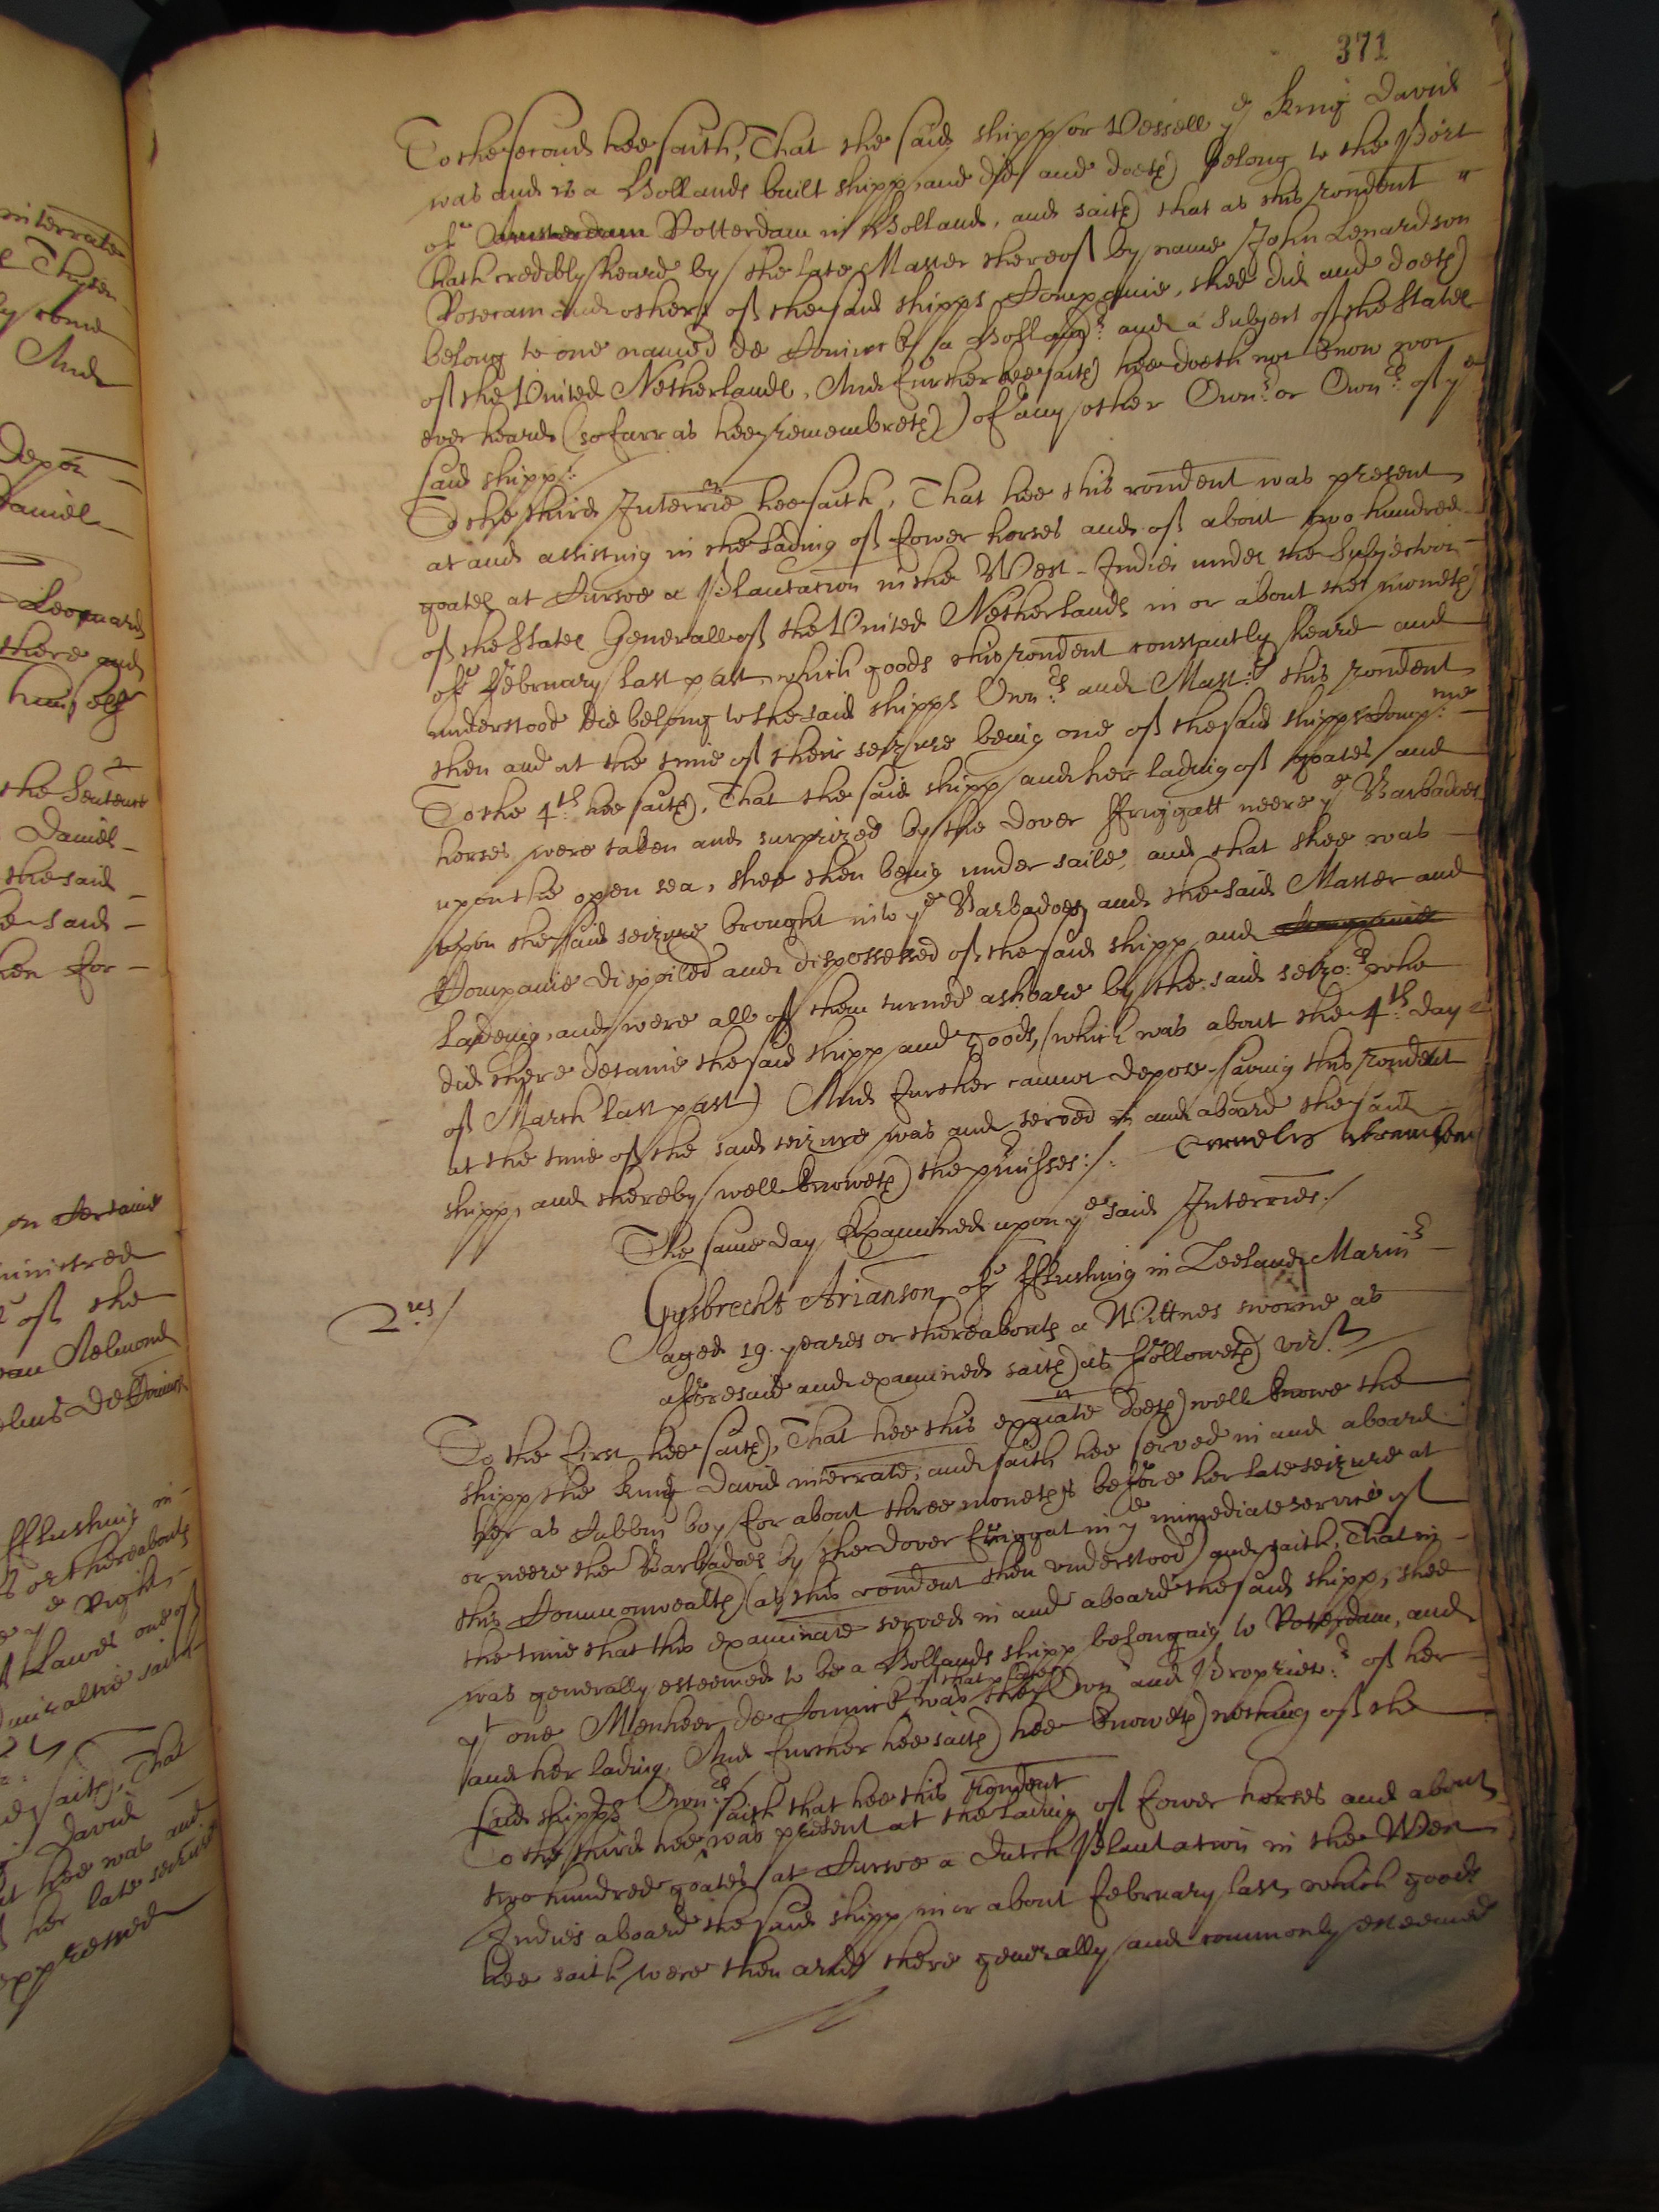 371
To the second hee saith, That the said shipp or Vessell ye King David
was and is a Hollands built shipp, and did and doeth belong to the Port
of Amsterdam Rotterdam in Holland, and saith that as this rondent
hath credibly heard by the late Master thereof by name John Lenardson
Roseram and others of the said shipps Companie, shee did and doeth
belong to one named de Coninck a Hollandr and a Subject of the States
of the United Netherlands, And further hee saith hee doeth not know nor
ever heard (so farr as hee remembreth) of any other Ownr or Ownrs of ye
said shipp:
To the third Interrie hee saith, That hee this rondent was present
at and assisting in the lading of fower horses and of about two hundred
goates at Cursoe a Plantation in the West-Indies under the Subjection
of the States Generall of the United Netherlands in or about the moneth
of February last past, which goods this rondent constantly heard and
understood did belong to the said shipps Ownrs and Mastr this rondent
then and at the time of their seizure being one of the said shipps Companie
To the 4th hee saith, That the said shipp and her lading of goates and
horses were taken and surprized by the Dover ffriggatt neere ye Barbadoes
upon the open sea, shee then being under saile, and that shee was
upon the said seizure brought into ye Barbadoes, and the said Master and
Companie dispoiled and dispossessed of the said shipp and Companie
ladeing, and were all of them turned ashoare by the said seizors who
did there detaine the said shipp and goods, (which was about the 4th day
of March last past) And further cannot depose saving this rondent
at the time of the said seizure was and served in and aboard the said
shipp, and thereby well knoweth the pmisses:/. Cornelis
The same day Examined upon ye said Interries:/
2us/
Gysbrecht Arianson of fflushing in Zeeland Marinr
aged 19 yeares or thereabouts a Wittnes sworne as
afforesaid and examined saith as followeth vizt
To the first hee saith, That hee this exaiate doeth well knowe the
shipp the King David interrate, and saith hee served in and aboard
her as Cabbin boy for about three moneths before her late seizure at
or neere the Barbadoes by the Dover friggat in ye immediate service of
this Commonwealth (as this rondent then understood) and saith, That in
the time that this examinate served in and aboard the said shipp, shee
was generally esteemed to be a Hollands shipp belonging to Roterdam, and
yt one Mienheer de Coninck of that place was the Ownr and Proprietr of her
and her lading, And further hee saith hee knoweth nothing of the
said shipps Ownrs
To the third hee saith that hee this rondent was present at the lading of fower horses and about
two hundred goates at Cursoe a Dutch Plantation in the West
Indies aboard the said shipp in or about February last, which goods
hee saith were then and there generally and commonly esteemed